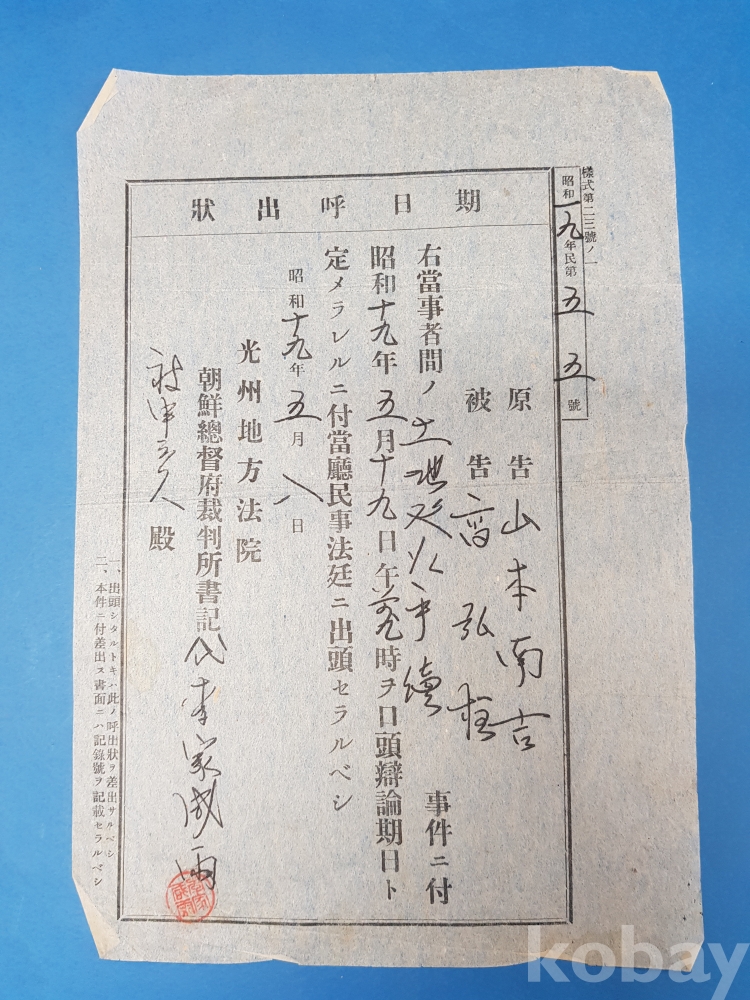 樣式第二三號ノ一
昭和一九年民第五五號
期日呼出狀
原告 山本南吉
被告 高弘
右當事者間ノ土地 手續 事件ニ付
昭和十九年五月十九日午前九時ヲ口頭辯論期日ト
定メラレルニ付當廳民事法廷ニ出頭セラルベシ
昭和十九年五月八日
光州地方法院
朝鮮總督府裁判所書記 家成雨
殿
一、出頭シタルトキハ此ノ呼出狀ヲ差出サルベシ
二、本件ニ付差出ス書面ニハ記錄號ヲ記載セラルベシ
kobay